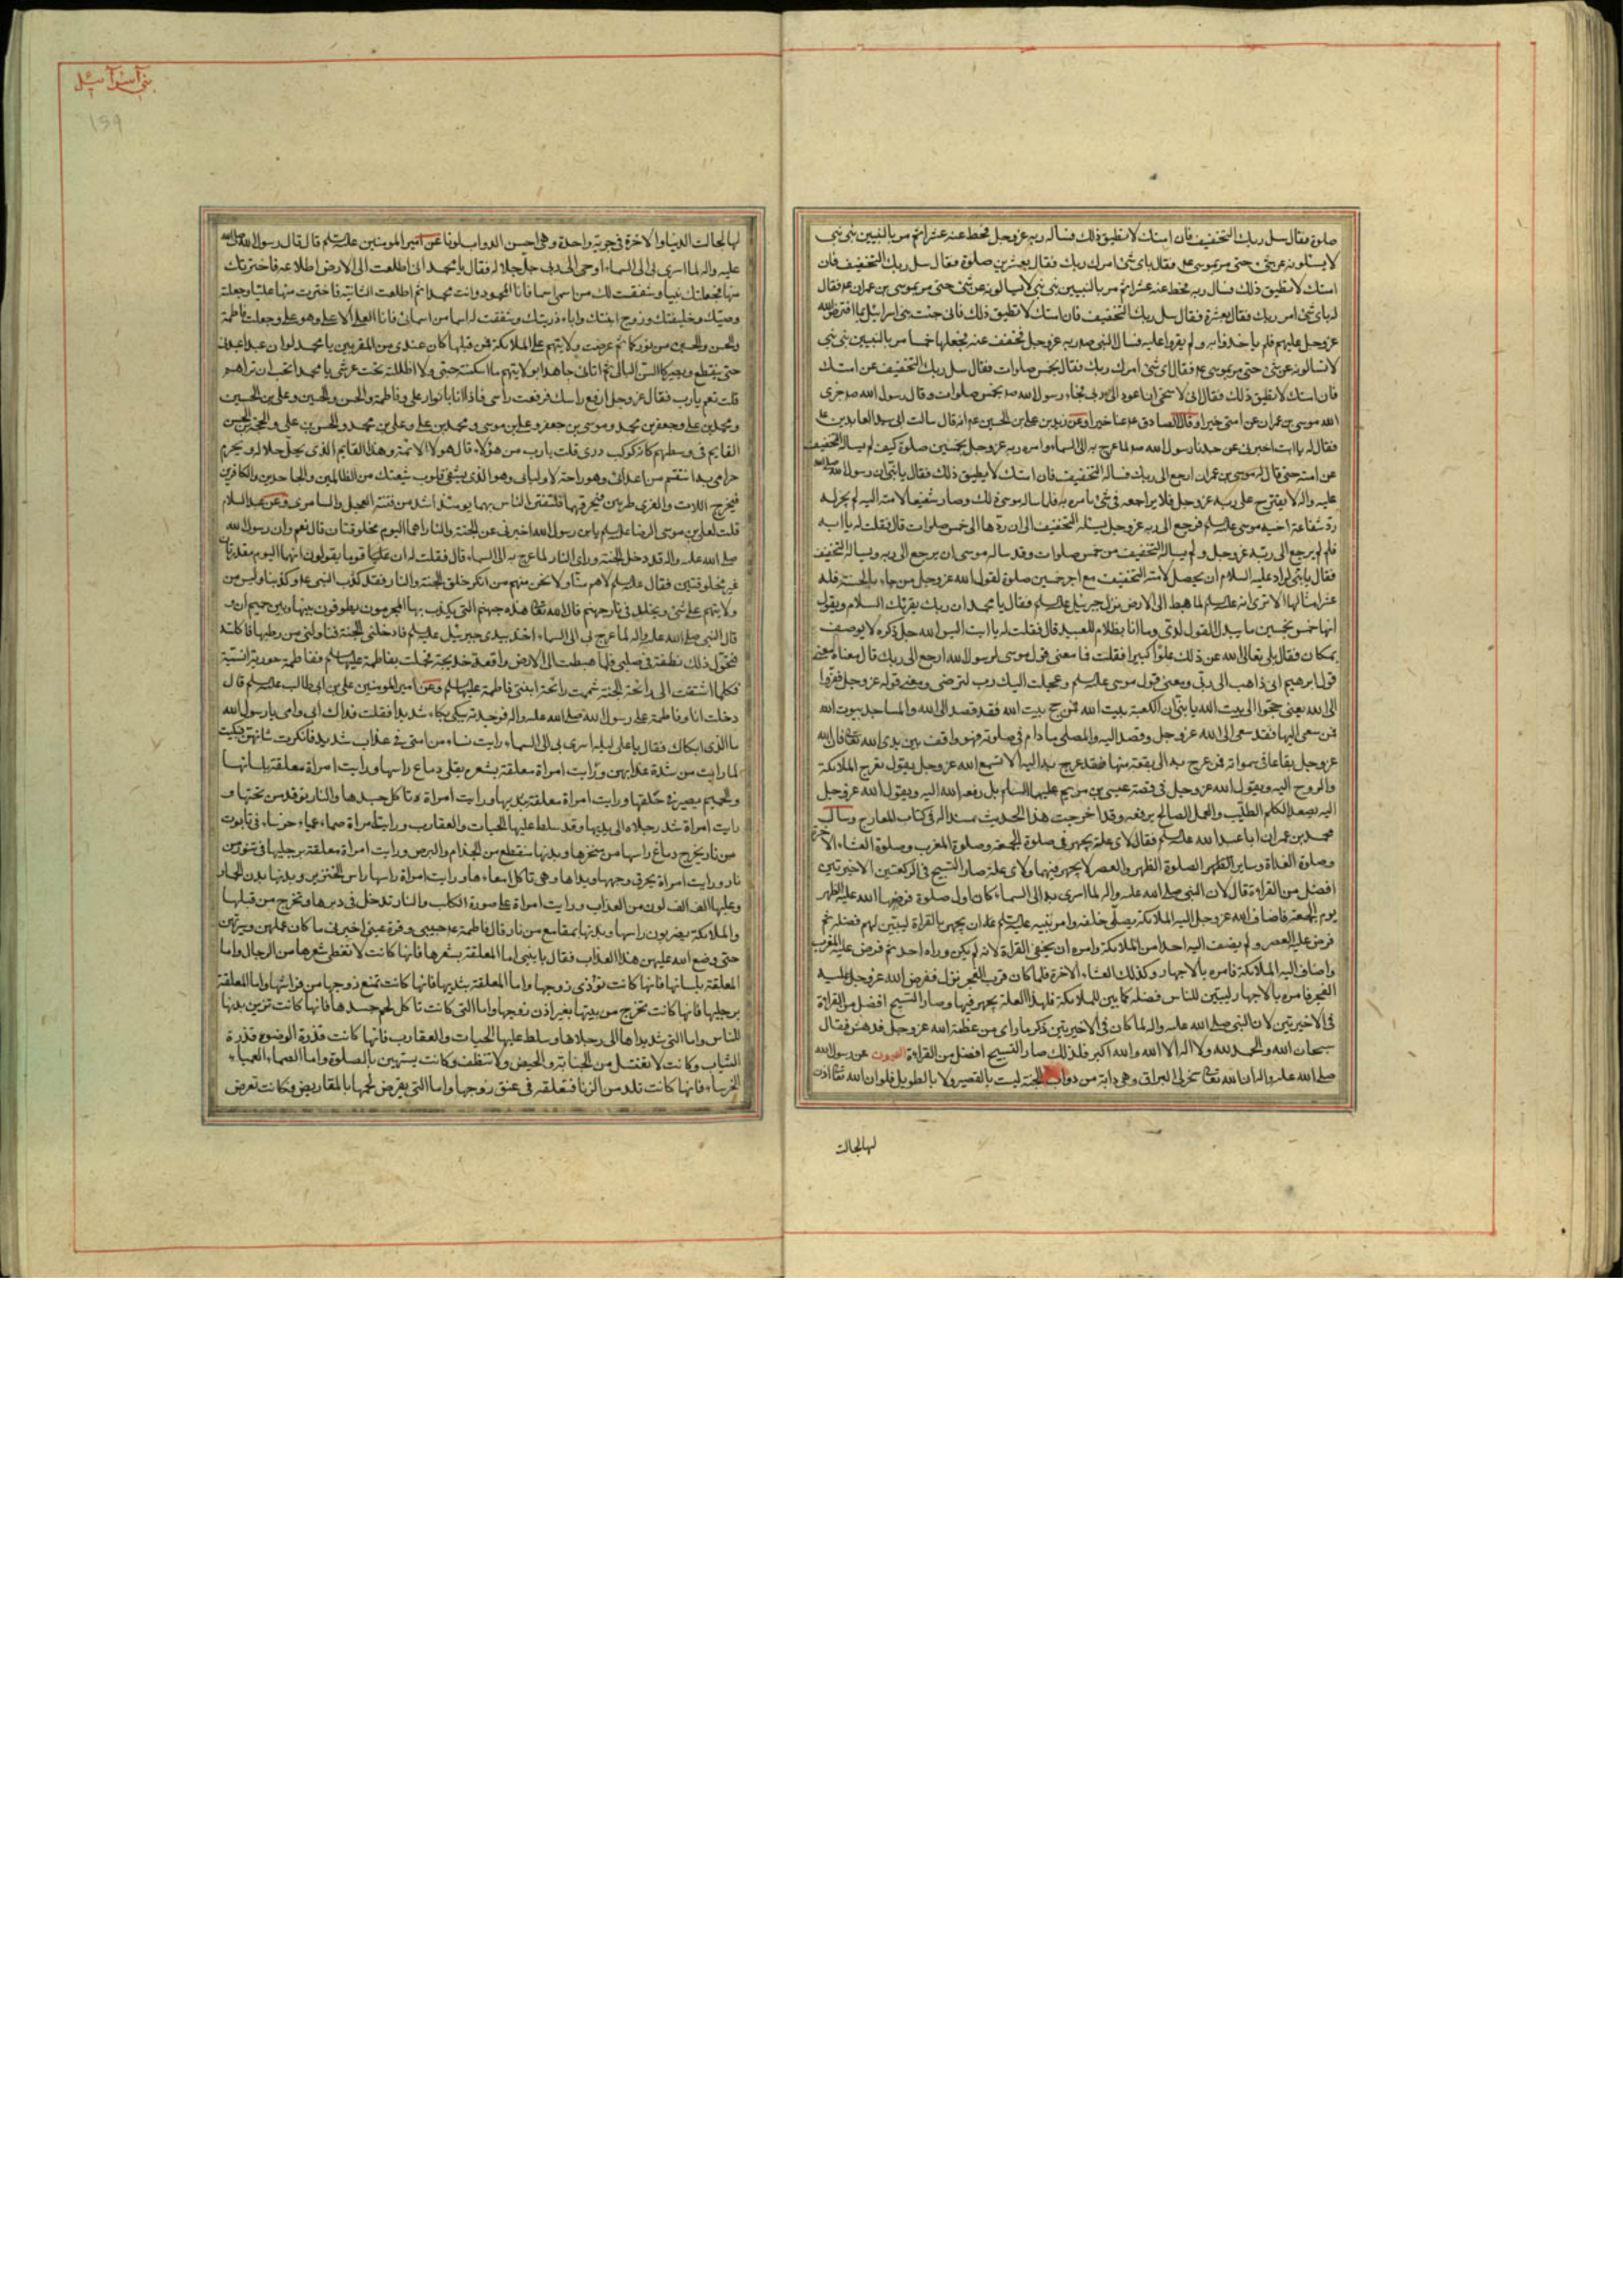 صلوة فقال سل ربك التخفيف فان امتك لا تطيق ذلك فسأله ربه عز وجل فحط عنه عشرا ثم مر بالنبيين نبي نبي
لا يسئلونه عن شئ حتى مر بموسى ع فقال باى شئ امرك ربك فقال بعشرين صلوة فقال سل ربك التخفيف فان
امتك لا تطيق ذلك فسال ربه فحط عنه عشرا ثم مر بالنبيين نبي نبي لا يسالونه عن شئ حتى مر بموسى بن عمران ع فقال
له باى شئ امرك ربك فقال بعشرة فقال سل ربك التخفيف فان امتك لا تطيق ذلك فانى جئت بنى اسرائيل بما افترض الله
عز وجل عليهم فلم ياخذوا به ولم يقروا عليه فسال النبى ص ربه عز وجل فخفف عنه فجعلها خمسا ثم مر بالنبيين نبي نبي
لا يسالونه عن شئ حتى مر بموسى ع فقال له باى شئ امرك ربك فقال بخمس صلوات فقال سل ربك التخفيف عن امتك
فان امتك لا تطيق ذلك فقال انى لاستحيى ان اعود الى ربى فجاء رسول الله ص بخمس صلوات وقال رسول الله ص جزى
الله موسى بن عمران عن امتى خيرا وقال الصادق ع جزاه الله عنا خيرا وعن زيد بن على بن الحسين ع انه قال سالت ابى سيد العابدين ع
فقلت له يا ابت اخبرنى عن جدنا رسول الله ص لما عرج به الى السماء وامره ربه عز وجل بخمسين صلوة كيف لم يساله التخفيف
عن امته حتى قال له موسى بن عمران ارجع الى ربك فساله التخفيف فان امتك لا تطيق ذلك فقال يا بنى ان رسول الله صلى الله
عليه واله لا يقترح على ربه عز وجل فلا يراجعه فى شئ يامره به فلما ساله موسى ذلك وصار شفيعا لامته اليه لم يجز له
رد شفاعة اخيه موسى عليه السلم فرجع الى ربه عز وجل يسئله التخفيف الى ان ردها الى خمس صلوات قال فقلت له يا ابه
فلم لم يرجع الى ربه عز وجل ولم يساله التخفيف من خمس صلوات وقد ساله موسى ان يرجع الى ربه ويساله التخفيف
فقال يا بنى اراد عليه السلام ان يحصل لامته التخفيف مع اجر خمسين صلوة لقول الله عز وجل من جاء بالحسنة فله
عشر امثالها الا ترى انه عليه السلم لما هبط الى الارض نزل جبرئيل عليه السلم فقال يا محمد ان ربك يقرئك السلام ويقول
انها خمس بخمسين ما يبدل القول لدى وما انا بظلام للعبيد قال فقلت له يا ابت اليس الله جل ذكره لا يوصف
بمكان فقال بلى تعالى الله عن ذلك علوا كبيرا فقلت فما معنى قول موسى لرسول الله ارجع الى ربك قال معناه معنى
قول ابرهيم انى ذاهب الى ربى ومعنى قول موسى عليه السلم وعجلت اليك رب لترضى ومعنى قوله عز وجل ففروا
الى الله يعنى حجوا الى بيت الله يا بنى ان الكعبة بيت الله فمن حج بيت الله فقد قصد الى الله والمساجد بيوت الله
فمن سعى اليها فقد سعى الى الله عز وجل وقصد اليه والمصلى ما دام فى صلوته فهو واقف بين يدى الله تعالى فان لله
عز وجل بقاعا فى سمواته فمن عرج به الى بقعة منها فقد عرج به اليه الا تسمع الله عز وجل يقول تعرج الملائكة
والروح اليه ويقول الله عز وجل فى قصة عيسى بن مريم عليهما السلم بل رفعه الله اليه ويقول الله عز وجل
اليه يصعد الكلم الطيب والعمل الصالح يرفعه وقد اخرجت هذا الحديث مسندا فى كتاب المعارج وسال
محمد بن عمران ابا عبد الله عليه السلم فقال لاى علة يجهر فى صلوة الجمعة وصلوة المغرب وصلوة العشاء الاخرة
وصلوة الغداة وساير الصلوة الظهر والعصر لا يجهر فيهما ولاى علة صار التسبيح فى الركعتين الاخيرتين
افضل من القراءة قال لان النبى صلى الله عليه واله لما اسرى به الى السماء كان اول صلوة فرضها الله عليه الظهر
يوم الجمعة فاضاف الله عز وجل اليه الملائكة يصلى خلفه وامر نبيه عليه السلم ان يجهر بالقراة ليبين لهم فضله ثم
فرض عليه العصر ولم يضف اليه احدا من الملائكة وامره ان يخفى القراة لانه لم يكن وراه احد ثم فرض عليه المغرب
واضاف اليه الملائكة فامره بالاجهار وكذلك العشاء الاخرة فلما كان قرب الفجر نزل ففرض الله عز وجل عليه
الفجر فامره بالاجهار ليبين للناس فضله كما بين للملائكة فلهذا العلة يجهر فيها وصار التسبيح افضل من القراءة
فى الاخيرتين لان النبى صلى الله عليه واله لما كان فى الاخيرتين ذكر ما راى من عظمة الله عز وجل فدهش فقال
سبحان الله والحمد لله ولا اله الا الله والله اكبر فلذلك صار التسبيح افضل من القراءة العيون عن رسول الله
صلى الله عليه واله ان الله تعالى سخر لى البراق وهى دابة من دواب الجنة ليست بالقصير ولا بالطويل فلو ان الله تعالى اذن
لها لجالت
بنى اسرآئيل
159
لها لجالت الدنيا والاخرة فى جرية واحدة وهى احسن الدواب لونا عن امير المومنين عليه السلم قال قال رسول الله صلى الله
عليه واله لما اسرى بى الى السماء اوحى الى ربى جل جلاله فقال يا محمد انى اطلعت الى الارض اطلاعة فاخترتك
منها فجعلتك نبيا وشققت لك من اسمى اسما فانا المحمود وانت محمد ثم اطلعت الثانية فاخترت منها عليا وجعلته
وصيك وخليفتك وزوج ابنتك وابا ذريتك وشققت له اسما من اسمائى فانا العلى الاعلى وهو على وجعلت فاطمة
والحسن والحسين من نوركما ثم عرضت ولايتهم على الملائكة فمن قبلها كان عندى من المقربين يا محمد لو ان عبدا عبدنى
حتى ينقطع ويصير كالشن البالى ثم اتانى جاهدا بولايتهم ما اسكنته جنتى ولا اظللته تحت عرشى يا محمد اتحب ان تراهم
قلت نعم يا رب فقال عز وجل ارفع راسك فرفعت راسى فاذا انا بانوار على وفاطمة والحسن والحسين وعلى بن الحسين
ومحمد بن على وجعفر بن محمد وموسى بن جعفر وعلى بن موسى ومحمد بن على وعلى بن محمد والحسن بن على والحجة بن الحسن
القايم فى وسطهم كانه كوكب درى قلت يا رب من هؤلاء قال هولا الائمة وهذا القايم الذى يحل حلاله ويحرم
حرامى به انتقم من اعدائى وهو راحة لاوليائى وهو الذى يشفى قلوب شيعتك من الظالمين والجاحدين والكافرين
فيخرج اللات والعزى طريين فيحرقهما فلفتنة الناس بهما يومئذ اشد من فتنة العجل والسامرى وعن عبد السلام
قلت لعلى بن موسى الرضا عليه السلم يابن رسول الله اخبرنى عن الجنة والنار اهما اليوم مخلوقتان قال نعم وان رسول الله
صلى الله عليه واله قد دخل الجنة وراى النار لما عرج به الى السماء قال فقلت له ان قوما يقولون انهما اليوم مقدرتان
غير مخلوقتين فقال عليه السلم لا هم منا ولا نحن منهم من انكر خلق الجنة والنار فقد كذب النبى ع وكذبنا وليس من
ولايتهم على شئ ويخلد فى نار جهنم قال الله تعالى هذه جهنم التى يكذب بها المجرمون يطوفون بينها وبين حميم ان و
قال النبى صلى الله عليه واله لما عرج بى الى السماء اخذ بيدى جبرئيل عليه السلم فادخلنى الجنة فناولنى من رطبها فاكلته
فتحول ذلك نطفة فى صلبى فلما هبطت الى الارض واقعت خديجة فحملت بفاطمة عليها السلم ففاطمة حورية انسية
فكلما اشتقت الى رائحة الجنة شممت رائحة ابنتى فاطمة عليها السلم وعن امير المومنين على بن ابى طالب عليه السلم قال
دخلت انا وفاطمة على رسول الله صلى الله عليه واله فوجدته يبكى بكاء شديدا فقلت فداك ابى وامى يا رسول الله
ما الذى ابكاك فقال يا على ليلة اسرى بى الى السماء رايت نساء من امتى فى عذاب شديد فانكرت شانهن فبكيت
لما رايت من شدة عذابهن ورايت امراة معلقة بشعرها يغلى دماغ راسها ورايت امراة معلقة بلسانها
والحميم يصب فى حلقها ورايت امراة معلقة بثدييها ورايت امراة تاكل جسدها والنار توقد من تحتها و
رايت امراة شد رجلاها الى يديها وقد سلط عليها الحيات والعقارب ورايت امراة صماء عمياء خرساء فى تابوت
من نار يخرج دماغ راسها من منخرها وبدنها متقطع من الجذام والبرص ورايت امراة معلقة برجليها فى تنور من
نار ورايت امراة يحرق وجهها ويداها وهى تاكل امعاءها ورايت امراة راسها راس الخنزير وبدنها بدن الحمار
وعليها الف الف لون من العذاب ورايت امراة على صورة الكلب والنار تدخل فى دبرها وتخرج من قبلها
والملائكة يضربون راسها وبدنها بمقامع من نار قالت فاطمة ع حبيبى وقرة عينى اخبرنى ما كان عملهن وسيرتهن
حتى وضع الله عليهن هذا العذاب فقال يا بنتى اما المعلقة بشعرها فانها كانت لا تغطى شعرها من الرجال واما
المعلقة بلسانها فانها كانت توذى زوجها واما المعلقة بثدييها فانها كانت تمنع زوجها من فراشها واما المعلقة
برجليها فانها كانت تخرج من بيتها بغير اذن زوجها واما التى كانت تاكل لحم جسدها فانها كانت تزين بدنها
للناس واما التى شد يداها الى رجلاها وسلط عليها الحيات والعقارب فانها كانت قذرة الوضوء قذرة
الثياب وكانت لا تغتسل من الجنابة والحيض ولا تتنظف وكانت تستهين بالصلوة واما الصماء العمياء
الخرساء فانها كانت تلد من الزنا فتعلقه فى عنق زوجها واما التى يقرض لحمها بالمقاريض فكانت تعرض